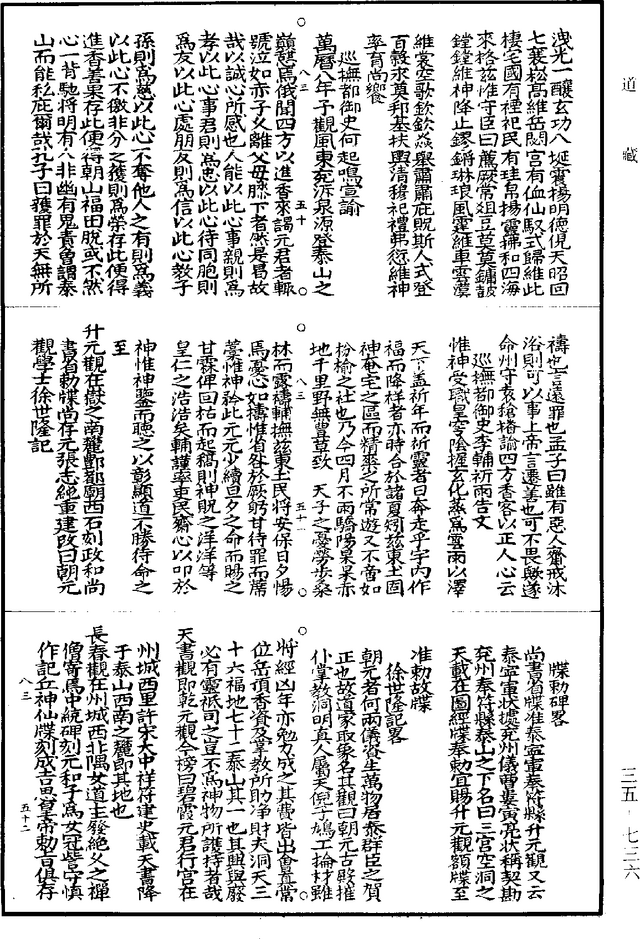 道藏
洩光一釀玄功八埏霄揚明德俔天昭回
七襄崧高維岳閟宮有血仙馭式歸維此
棲宅國有禋祀民有珪帛揚靈拂和四海
來格玆惟守臣曰薦厥常俎豆莫莫鏞鼓
鏜鏜維神降止鏐鏘琳琅風霆維車雲霓
維裳空歌欽欽焱舉肅肅庇貺斯人式登
百穀永奠邦基扶輿清穆祀禮弗愆維神
率育尚饗
巡撫都御史何起鳴宣諭
萬曆八年子觀風東兖泝泉源登泰山之
巔憇焉俄聞四方以進香來謁元君者輒
號泣如赤子久離父母膝下者然是曷故
哉以誠心所感也人能以此心事親則爲
孝以此心事君則爲忠以此心待同胞則
爲友以此心處朋友則爲信以此心教子
孫則爲慈以此心不奪他人之有則爲義
以此心不徼非分之獲則爲榮存此便得
進香善果存此便得朝山福田脫或不然
心一背馳將明有人非幽有鬼責曾謂泰
山而能私庇爾哉孔子曰獲罪於天無所
八三
五十
禱也言遠罪也孟子曰雖有惡人齋戒沐
浴則可以事上帝言遷善也可不畏歟遂
命州守袁稽播諭四方香客以正人心云
巡撫都御史李輔祈雨告文
惟神受職皇穹陰握玄化蒸爲雲雨以澤
天下盖祈年而祈靈者日奔走乎宇內作
福而降祥者亦時合於諸夏矧玆東土固
神奄宅之區而精禋之所常遊又不啻如
枌榆之社也乃今四月不雨驕陽杲杲赤
地千里野無豐草致 天子之憂勞步桑
林而露禱輔撫玆東土民將安保日夕惕
焉憂心如擣惟省咎於厥躬甘待罪而席
藁惟神矜此元元少續旦夕之命而賜之
甘霖俾回枯而起稿則神貺之洋洋等
皇仁之浩浩矣輔謹率吏民齋心以叩於
神惟神鑒而聽之以彰顯道不勝待命之
至
升元觀在嶽之南麓酆都廟西石刻政和尚
書省勅牒尚存元張志純重建改曰朝元
觀學士徐世隆記
八三
五十一
牒勅碑畧
尚書省牒准泰寧軍奉符縣升元觀又云
泰寧軍狀據兖州儀曹婁寅亮狀稱契勘
兖州奉符縣泰山之下名曰三宮空洞之
天載在圖經牒奉勅宜賜升元觀額牒至
准勅故牒
徐世隆記畧
朝元者何兩儀資生萬物君泰群臣之賀
正也故道家取象名其觀曰朝元古殿摧
仆掌教洞明眞人屬天倪子鳩工掄材雖
將經凶年亦勉力成之其費皆出會眞常
位岳頂香資及業教所助淨財夫洞天三
十六福地七十二泰山其一也其興與廢
必有靈祇司之豈不爲神物所護持者哉
天書觀即乾元觀今榜曰碧霞元君行宮在
州城西里許宋大中祥符建史載天書降
于泰山西南之麓即其地也
長春觀在州城西北隅女道主發絕父之禪
僧寄爲中統碑刻元和子爲女冠訾守慎
作記丘神仙牒刻成吉思皇帝勅旨俱存
八三
五十二
三五-七三六